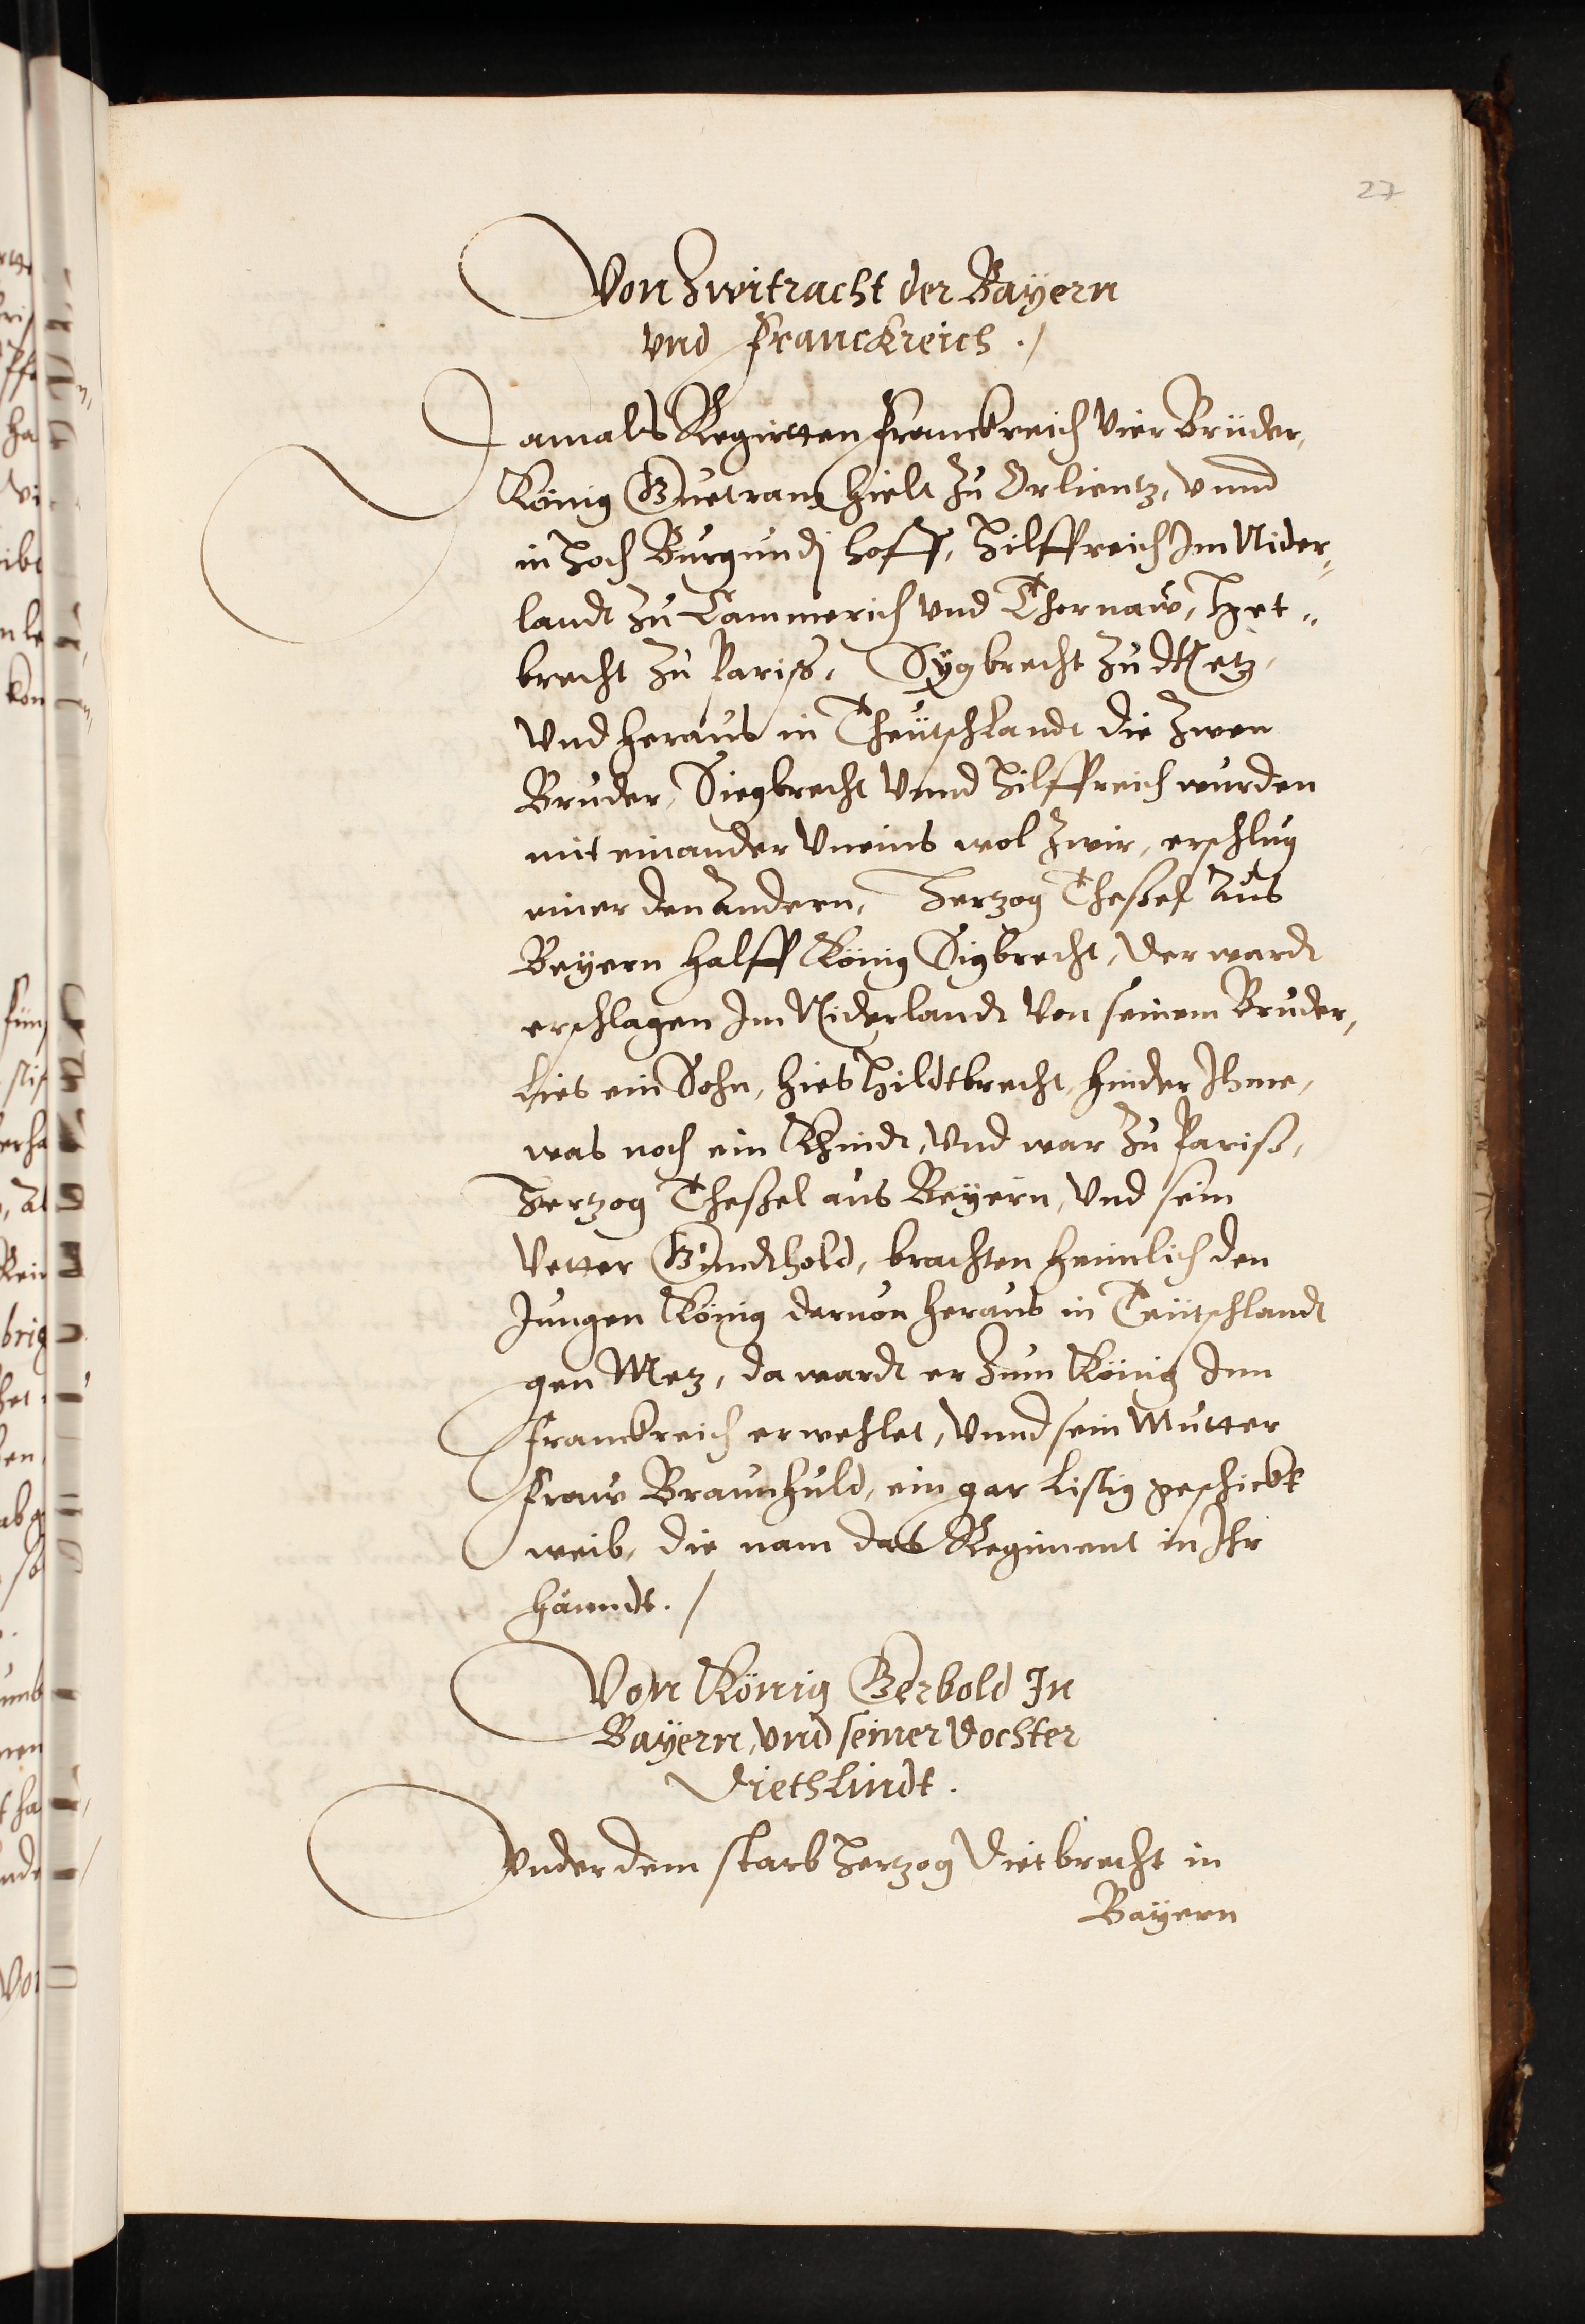 27
Von Zwitracht der Bayern
vnd Franckreich ./
Damals Regirtten Franckreich Vier Brüder,
König Guetram hielt zu Orlientz, vnnd
in Hoch Burgundj hoff, Hilffreich Im Nider¬
landt zu Cammerich vnd Thornaw, Het¬
brecht zu Pariß, Sÿgbrecht zu Metz,
vnd heraus in Theütschlandt die Zwen
Bruder, Siegbrecht vnnd Hilffreich wurden
mit einander vneins wol zwir, erschlug
einer den Andern, Herzog Theßel Aus
Beÿern halff König Sigbrecht, der wardt
erschlagen Im Niderlandt von seinem Bruder,
Lies ein Sohn, hies Hildtbrecht, hinder Ihme,
was noch ein Khindt, vnd war zu Pariß,
Hertzog Theßel aus Beÿern, vnd sein
Vetter Gundthold, brachten heimlich den
Jungen König daruon heraus in Teütschlandt
gen Metz, da wardt er zum König Inn
Franckreich erwehlet, vnnd sein Mutter
Fraw Braunhuld, ein gar Listig geschickt
weib, die nam das Regiment in Ihr
hänndt. /
Von König Gerbold In
Baÿern, vnd seiner Dochter
Diethlindt.
Vnder dem starb Hertzog Dietbrecht in
Baÿern